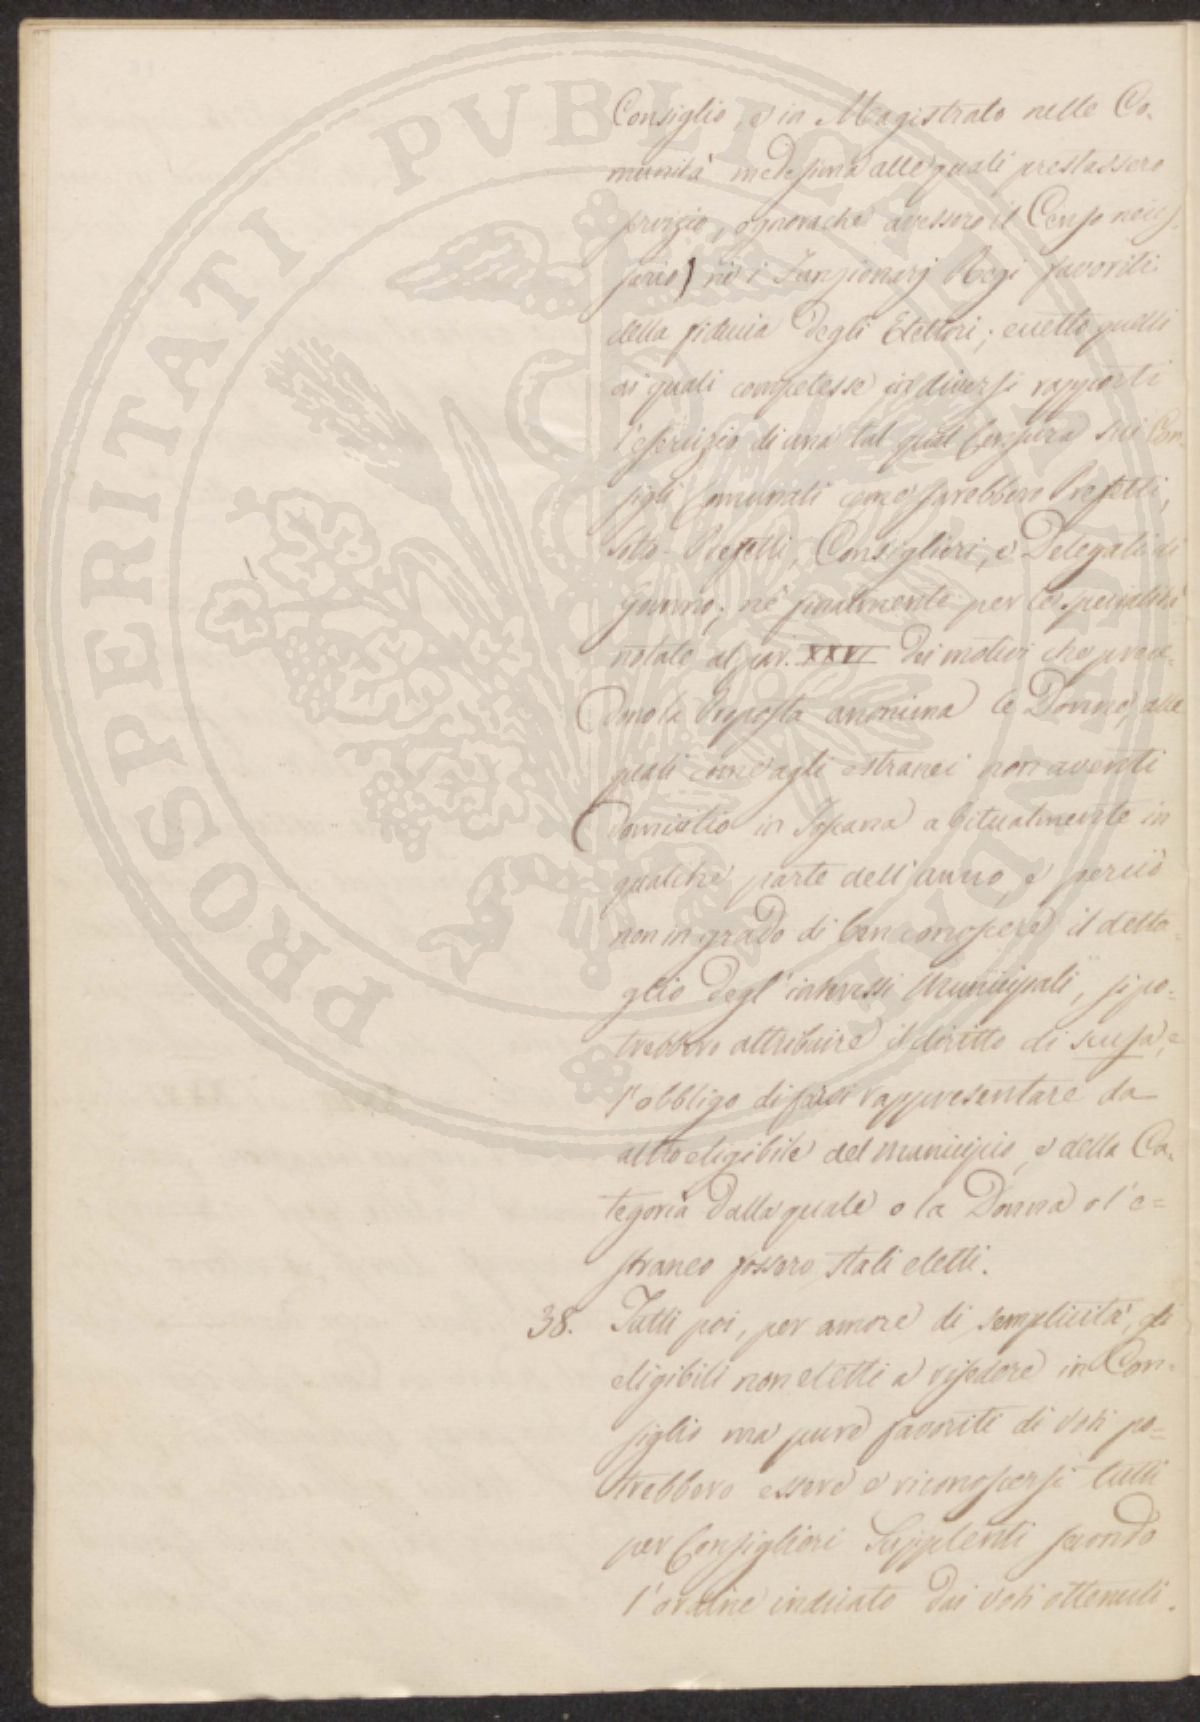 Consiglio, e in Magistrato nelle Co-
munità medesima alle quali prestassero
servizio, ognora che avessero il Censo neces-
sario) nè i Funzionarj Regi favoriti
della fiducia degli Elettori; eccetto quelli
ai quali competesse in diversi rapporti
l'esercizio di una tal qual Censura sui Con-
sigli Comunali come sarebbero Prefetti,
Sotto-Prefetti, Consiglieri, e Delegati di
Governo; nè finalmente per le specialità
notate al par. XXVI dei motivi che prece-
dono la Proposta anonima le Donne, alle
quali come agli estranei non aventi
domicilio in Toscana abitualmente in
qualche parte dell'anno, e perciò
non in grado di ben conoscere il detta-
glio degl'interessi Municipali, si po-
trebbero attribuire il diritto di scusa, e
l'obbligo di farsi rappresentare da
altro eligibile del municipio, e della Ca-
tegoria dalla quale o la Donna o l'e=
straneo fossero stati eletti.
38. Tutti poi, per amore di semplicità, gli
eligibili non eletti a risedere in Con-
siglio ma pure favoriti di voti po=
trebbero essere e riconoscersi tutti
per Consiglieri Supplenti secondo
l'ordine indicato dai voti ottenuti.
PROSPERITATI PVBLICAE